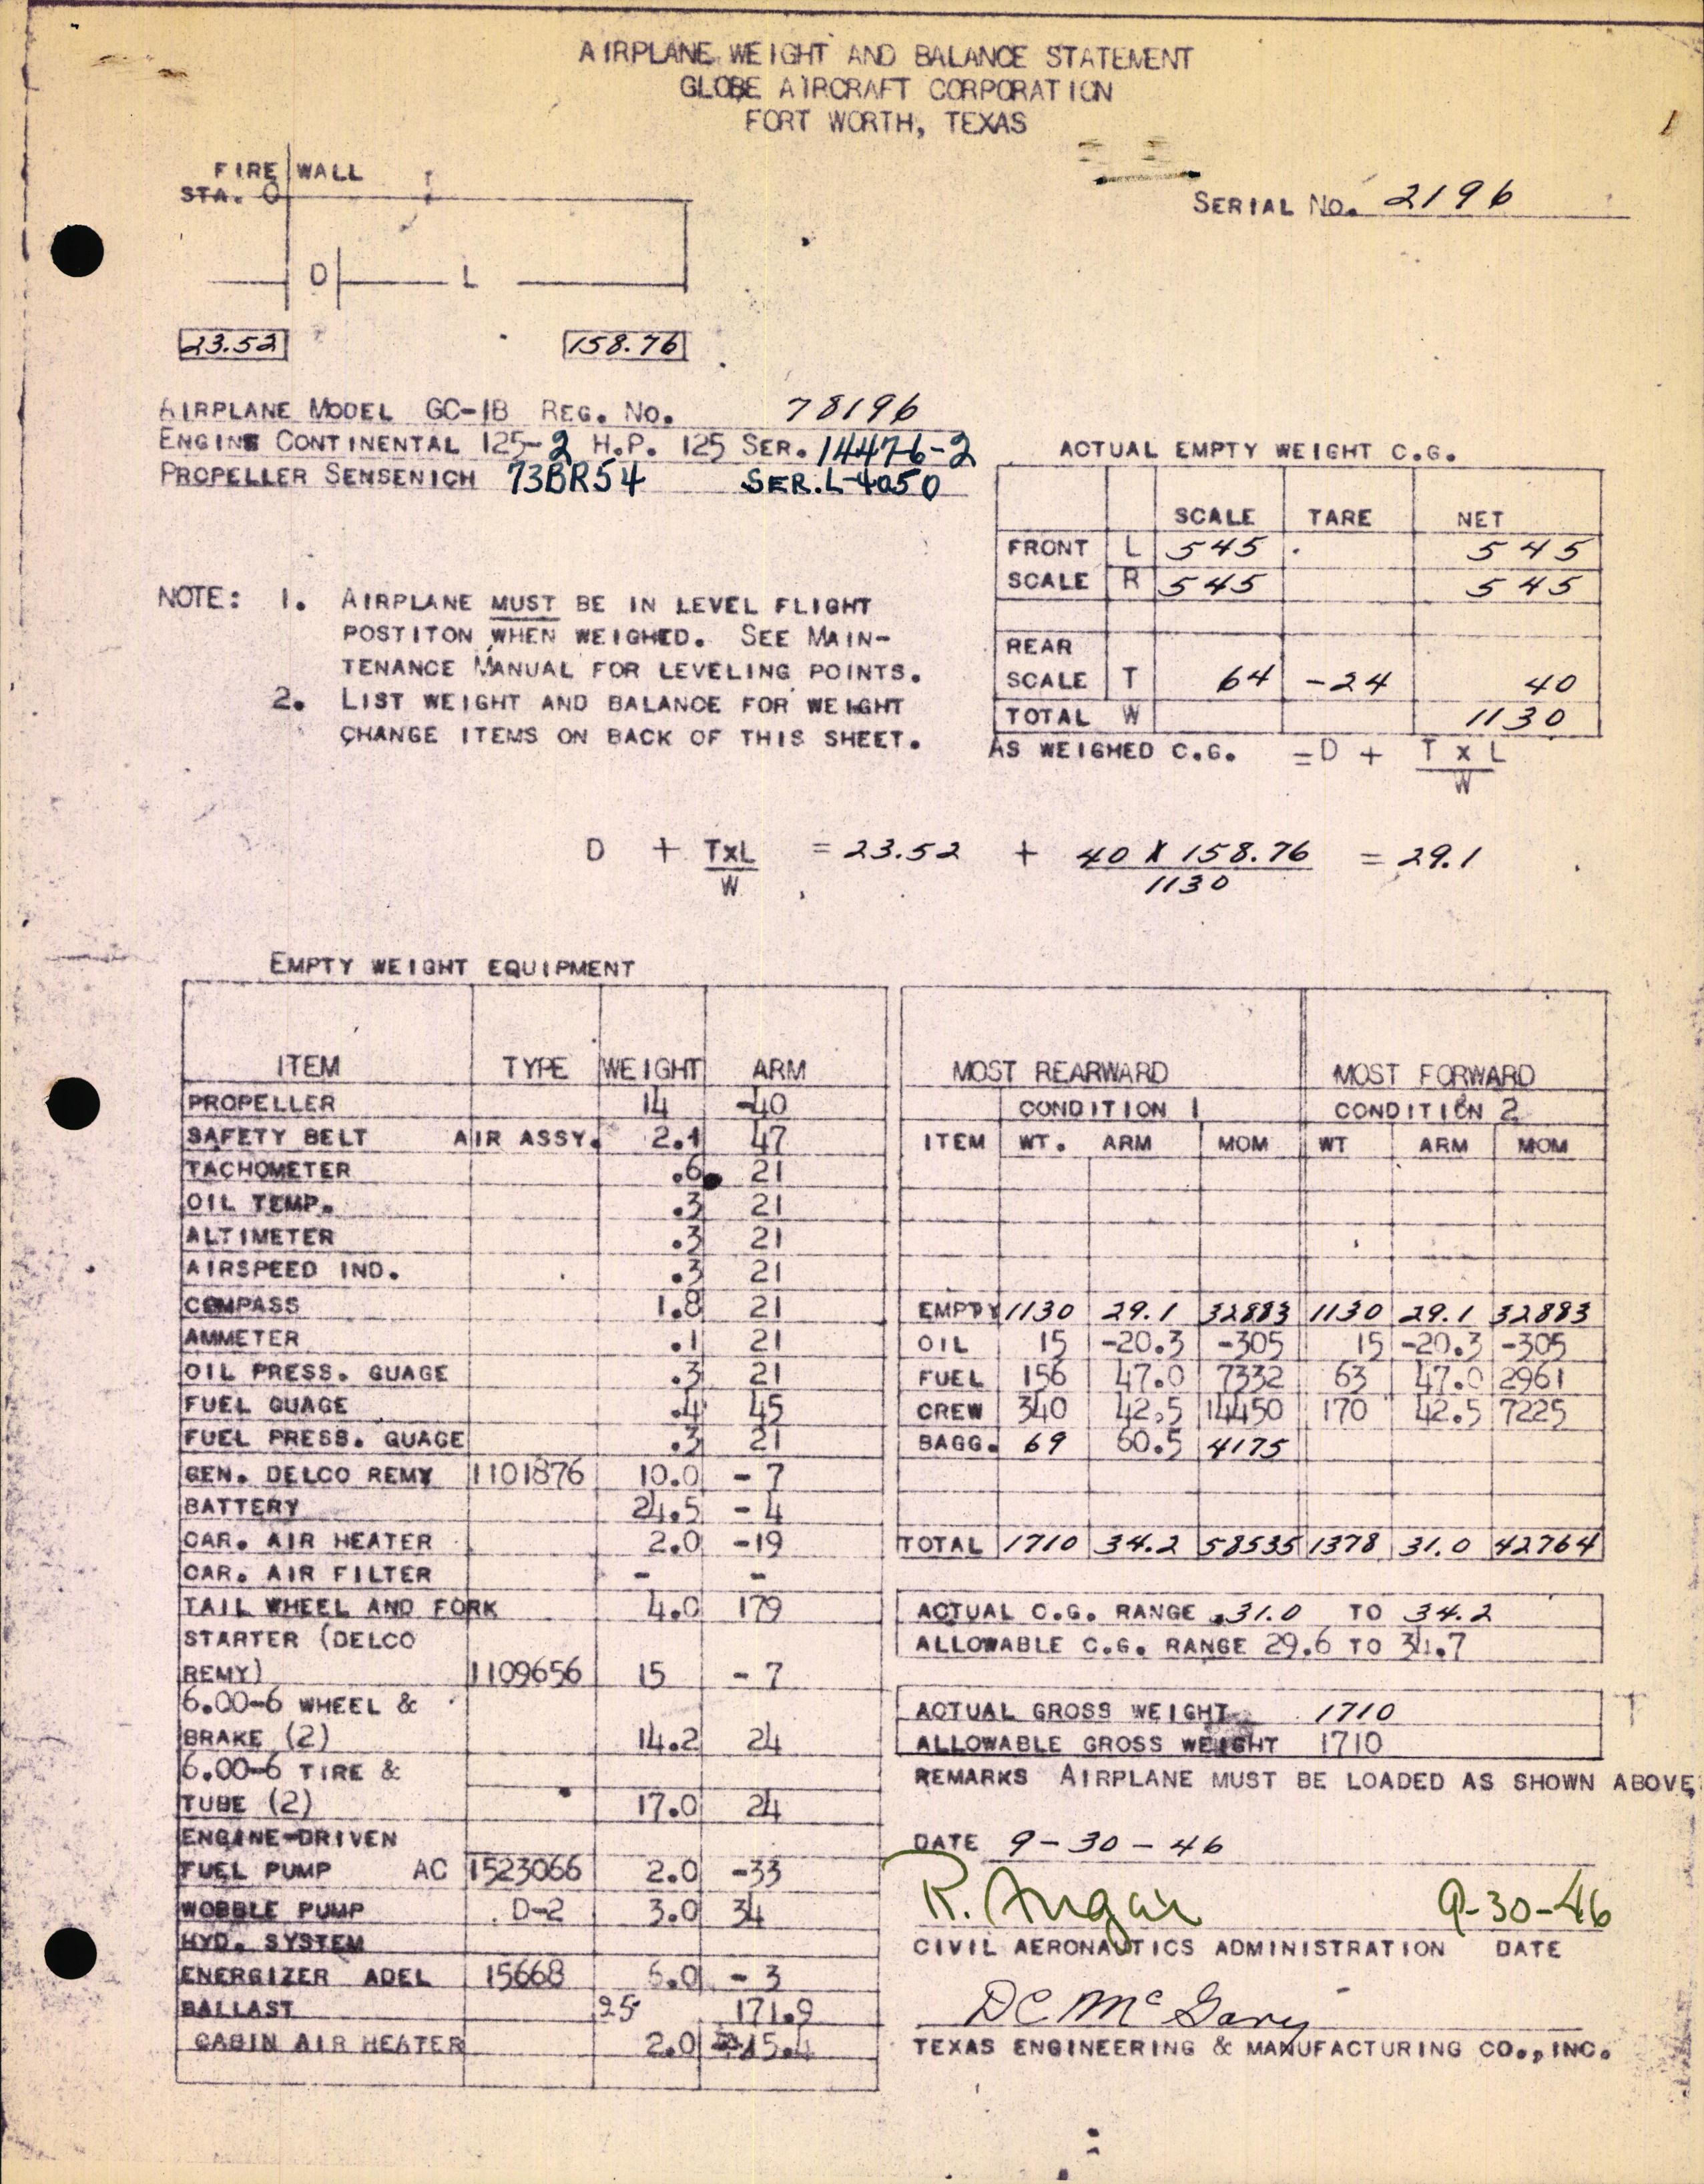 AIRPLANE WEIGHT AND BALANCE STATEMENT
GLOBE AIRCRAFT CORPORATION
FORT WORTH, TEXAS
1
FIRE WALL
STA. 0
SERIAL NO. 2196
D L
23.52 158.76
AIRPLANE MODEL GC-1B REG. NO. 78196
ENGINE CONTINENTAL 125-2 H.P. 125 SER. 14476-2
PROPELLER SENSENICH 73BR54 SER. L-4050
ACTUAL EMPTY WEIGHT C.G.
SCALE TARE NET
FRONT L 545 545
SCALE R 545 545
REAR
SCALE T 64 -24 40
TOTAL W 1130
AS WEIGHED C.G. = D + T X L
W
NOTE: 1. AIRPLANE MUST BE IN LEVEL FLIGHT
POSTITON WHEN WEIGHED. SEE MAIN-
TENANCE MANUAL FOR LEVELING POINTS.
2. LIST WEIGHT AND BALANCE FOR WEIGHT
CHANGE ITEMS ON BACK OF THIS SHEET.
D + TXL = 23.52 + 40 X 158.76 = 29.1
W 1130
EMPTY WEIGHT EQUIPMENT
ITEM TYPE WEIGHT ARM
PROPELLER 14 -40
SAFETY BELT AIR ASSY. 2.1 47
TACHOMETER .6 21
OIL TEMP. .3 21
ALTIMETER .3 21
AIRSPEED IND. .3 21
COMPASS 1.8 21
AMMETER .1 21
OIL PRESS. GUAGE .3 21
FUEL GUAGE .4 45
FUEL PRESS. GUAGE .3 21
GEN. DELCO REMY 1101876 10.0 - 7
BATTERY 24.5 - 4
CAR. AIR HEATER 2.0 -19
CAR. AIR FILTER - -
TAIL WHEEL AND FORK 4.0 179
STARTER (DELCO
REMY) 1109656 15 - 7
6.00-6 WHEEL &
BRAKE (2) 14.2 24
6.00-6 TIRE &
TUBE (2) 17.0 24
ENGINE-DRIVEN
FUEL PUMP AC 1523066 2.0 -33
WOBBLE PUMP D-2 3.0 34
HYD. SYSTEM
ENERGIZER ADEL 15668 6.0 - 3
BALLAST 25 171.9
CABIN AIR HEATER 2.0 15.4
MOST REARWARD MOST FORWARD
CONDITION 1 CONDITION 2
ITEM WT. ARM MOM WT ARM MOM
EMPTY 1130 29.1 32883 1130 29.1 32883
OIL 15 -20.3 -305 15 -20.3 -305
FUEL 156 47.0 7332 63 47.0 2961
CREW 340 42.5 14450 170 42.5 7225
BAGG. 69 60.5 4175
TOTAL 1710 34.2 58535 1378 31.0 42764
ACTUAL C.G. RANGE 31.0 TO 34.2
ALLOWABLE C.G. RANGE 29.6 TO 34.7
ACTUAL GROSS WEIGHT 1710
ALLOWABLE GROSS WEIGHT 1710
REMARKS AIRPLANE MUST BE LOADED AS SHOWN ABOVE
DATE 9-30-46
R. 9-30-46
CIVIL AERONAUTICS ADMINISTRATION DATE
DC McGary
TEXAS ENGINEERING & MANUFACTURING CO., INC.